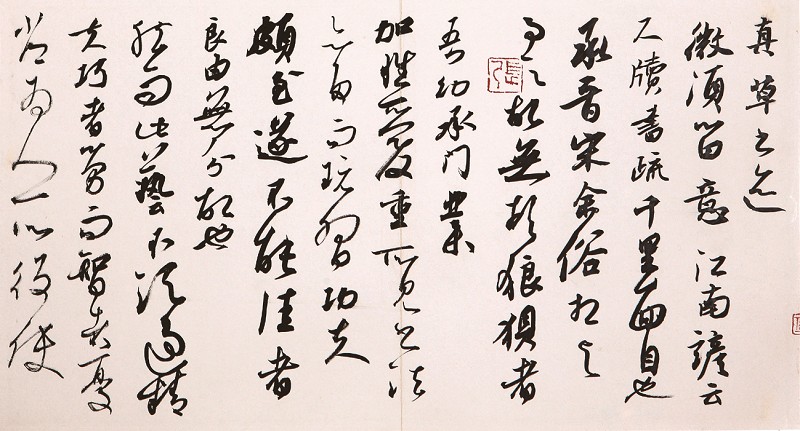 真草書迹
微須留意江南諺云
尺牘書疏千里面目也
承晉宋余俗相與
事之故無頓狼狽者
張
吾幼承門業
加性愛重所見書法
亦多而玩習功夫
頗至遂不能佳者
良由無分故也
然而此藝不須過精
夫巧者勞而智者憂
常為人所役使